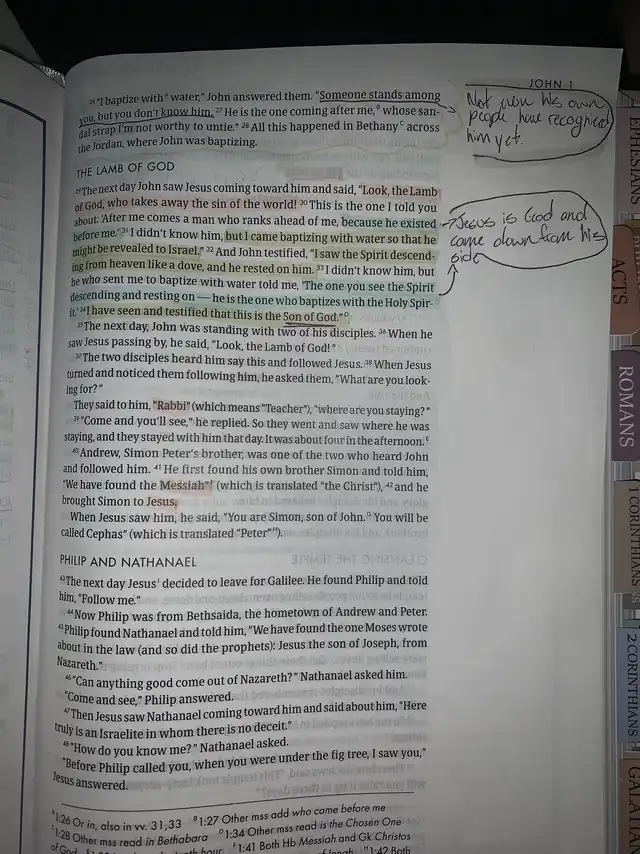 JOHN 1
²⁶ "I baptize with^A water," John answered them. "Someone stands among
you, but you don't know him. ²⁷ He is the one coming after me,^B whose san-
dal strap I'm not worthy to untie." ²⁸ All this happened in Bethany^C across
the Jordan, where John was baptizing.
Not even his own
people have recognized
him yet.
THE LAMB OF GOD
²⁹ The next day John saw Jesus coming toward him and said, "Look, the Lamb
of God, who takes away the sin of the world! ³⁰ This is the one I told you
about: 'After me comes a man who ranks ahead of me, because he existed
before me.' ³¹ I didn't know him, but I came baptizing with water so that he
might be revealed to Israel." ³² And John testified, "I saw the Spirit descend-
ing from heaven like a dove, and he rested on him. ³³ I didn't know him, but
he who sent me to baptize with water told me, 'The one you see the Spirit
descending and resting on — he is the one who baptizes with the Holy Spir-
it.' ³⁴ I have seen and testified that this is the Son of God."^D
Jesus is God and
came down from his
side
³⁵ The next day, John was standing with two of his disciples. ³⁶ When he
saw Jesus passing by, he said, "Look, the Lamb of God!"
³⁷ The two disciples heard him say this and followed Jesus. ³⁸ When Jesus
turned and noticed them following him, he asked them, "What are you look-
ing for?"
They said to him, "Rabbi" (which means "Teacher"), "where are you staying?"
³⁹ "Come and you'll see," he replied. So they went and saw where he was
staying, and they stayed with him that day. It was about four in the afternoon.^E
⁴⁰ Andrew, Simon Peter's brother, was one of the two who heard John
and followed him. ⁴¹ He first found his own brother Simon and told him,
"We have found the Messiah"^F (which is translated "the Christ"), ⁴² and he
brought Simon to Jesus.
When Jesus saw him, he said, "You are Simon, son of John.^G You will be
called Cephas" (which is translated "Peter"^H).
PHILIP AND NATHANAEL
⁴³ The next day Jesus^I decided to leave for Galilee. He found Philip and told
him, "Follow me."
⁴⁴ Now Philip was from Bethsaida, the hometown of Andrew and Peter.
⁴⁵ Philip found Nathanael and told him, "We have found the one Moses wrote
about in the law (and so did the prophets): Jesus the son of Joseph, from
Nazareth."
⁴⁶ "Can anything good come out of Nazareth?" Nathanael asked him.
"Come and see," Philip answered.
⁴⁷ Then Jesus saw Nathanael coming toward him and said about him, "Here
truly is an Israelite in whom there is no deceit."
⁴⁸ "How do you know me?" Nathanael asked.
"Before Philip called you, when you were under the fig tree, I saw you,"
Jesus answered.
^A 1:26 Or in, also in vv. 31,33 ^B 1:27 Other mss add who came before me
^C 1:28 Other mss read in Bethabara ^D 1:34 Other mss read is the Chosen One
of God hour ^F 1:41 Both Hb Messiah and Gk Christos
^H 1:42 Both
EPHESIANS
ACTS
ROMANS
1 CORINTHIANS
2 CORINTHIANS
GALATIANS